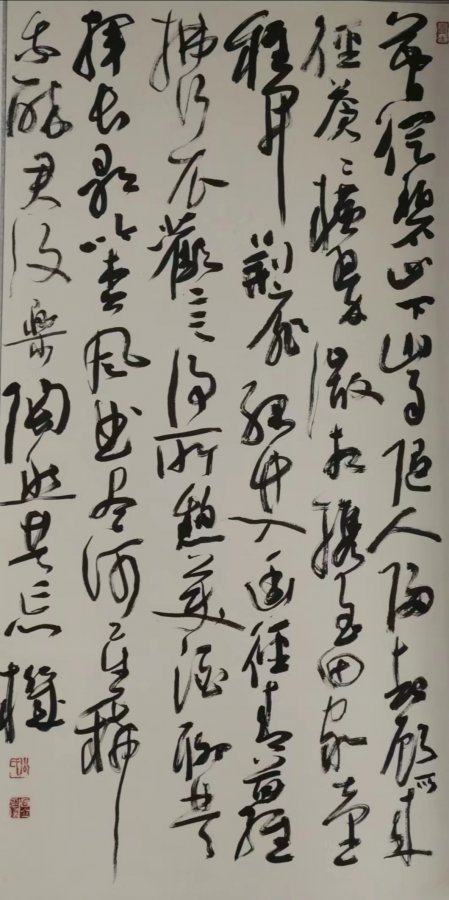 暮從碧山下山月隨人歸却顧所來
徑蒼〻橫翠微相攜至田家童
稚開荊扉綠竹入幽徑青蘿
拂行衣歡言得所憩美酒聊共
揮長歌吟松風曲盡河星稀
我醉君復樂陶然共忘機